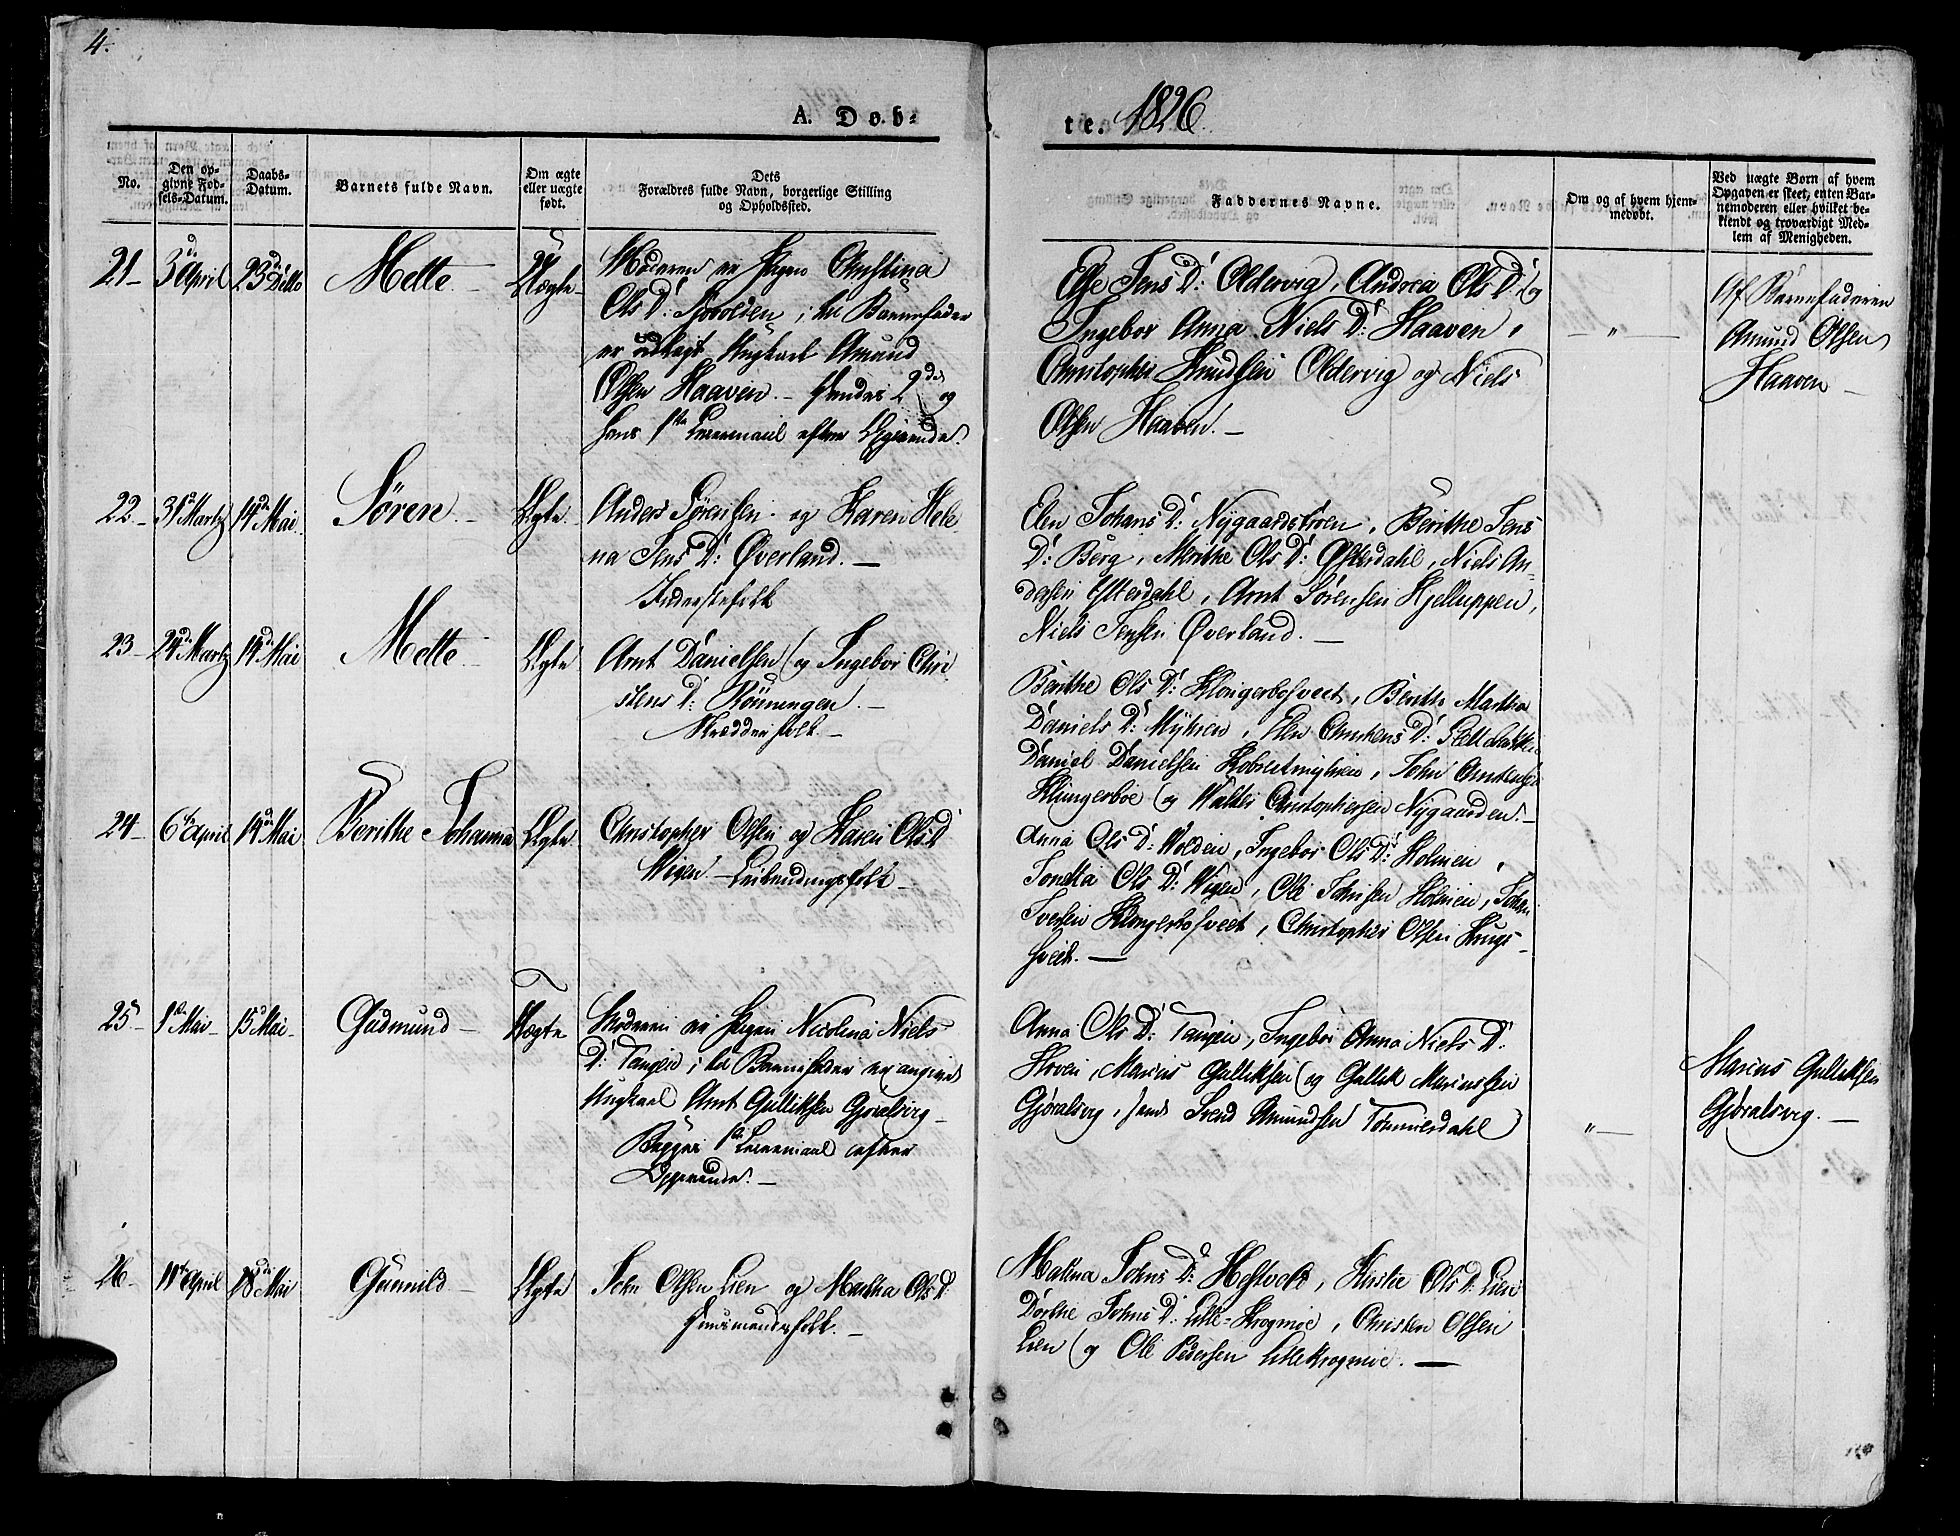 4.
A. Døb-
te. 1826.
No.
Den op-
givne Fød-
sels-Datum.
Daabs-
Datum.
Barnets fulde Navn.
Om ægte
eller uægte
født.
Dets
Forældres fulde Navn, borgerlige Stilling
og Opholdssted.
Faddernes Navne.
Om og af hvem hjem-
medøbt.
Ved uægte Børn af hvem
Opgaven er skeet, enten Bar-
nemoderen eller hvilket be-
kiendt og troværdigt Med-
lem af Menigheden.
21 3d April 23d Ditto Mette Uægte
Moderen er Pigen Christina
Ols D:
i til Barnefader
er udlagt Ungkarl Amund
Olsen Haaven. – Hendes 2det og
hans 1ste Leiermaal efter Opgivende.
Else Jens D: Oldervig, Andrea Ols D: og
Ingebor Anna Niels D: Haaven,
Christopher Knudsen Oldervig og Niels
Olsen Haaven. –
– " –
Af Barnefaderen
Amund Olsen
Haaven –
22 31 Martz 14d Mai Sören. Ægte
Anders Sörensen og Karen Hele
na Jens D: Øverland. –
Inderstefolk
Elen Johans D: Nygaardstrøen, Berithe Jens
D: Berg, Merithe Ols D: Østerdahl, Niels An-
dersen Østerdahl, Arnt Sörensen Kjelluppen,
Niels Jensen Øverland. –
23 24d Martz 14d Mai Mette Ægte
Arnt Danielsen og Ingebor Chri
stens D: Rönningen. –
Skrædderfolk –
Berithe Ols D: Klongerbosveet, Berithe Martha
Daniels D: Myhren, Elen Christens D:
Daniel Danielsen
John Arntsen
Klungerboe og Walter Christophersen Nygaarden. –
24 6te April 14d Mai Berithe Johanna Ægte
Christopher Olsen og Karen Ols D:
Wigen. – Leilendingsfolk –
Anna Ols D: Wolden, Ingebor Ols D: Holmen,
Jonetta Ols D: Wigen, Ole Johnsen Holmen, John
Iversen Klongerbosveet, Christopher Olsen Krogs-
sveet. –
25 1ste Mai 15d Mai Gudmund Uægte
Moderen er Pigen Nicolina Niels
D: Tangen; til Barnefader er angivet
Ungkarl Arnt Gulliksen Gjøralsvig –
Begges 1ste Leiermaal efter
Opgivende. –
Anna Ols D: Tangen, Ingebor Anna Niels D:
Hoven, Marius Gulliksen og Gullik Mariussen
Gjøralsvig, samt Svend Amundsen Tømmerdahl
" –
Marius Gulliksen
Gjøralsvig. –
26 11te April 18de Mai Gunnild Ægte
John Olsen Lien og Martha Ols D:
Huusmandsfolk. –
Malena Johns D: Kirstie Ols D: Lien
Dorthe Johns D: Lille-Krogmoe, Christen Olsen
Lien og Ole Pedersen Lillekrogmoe. –